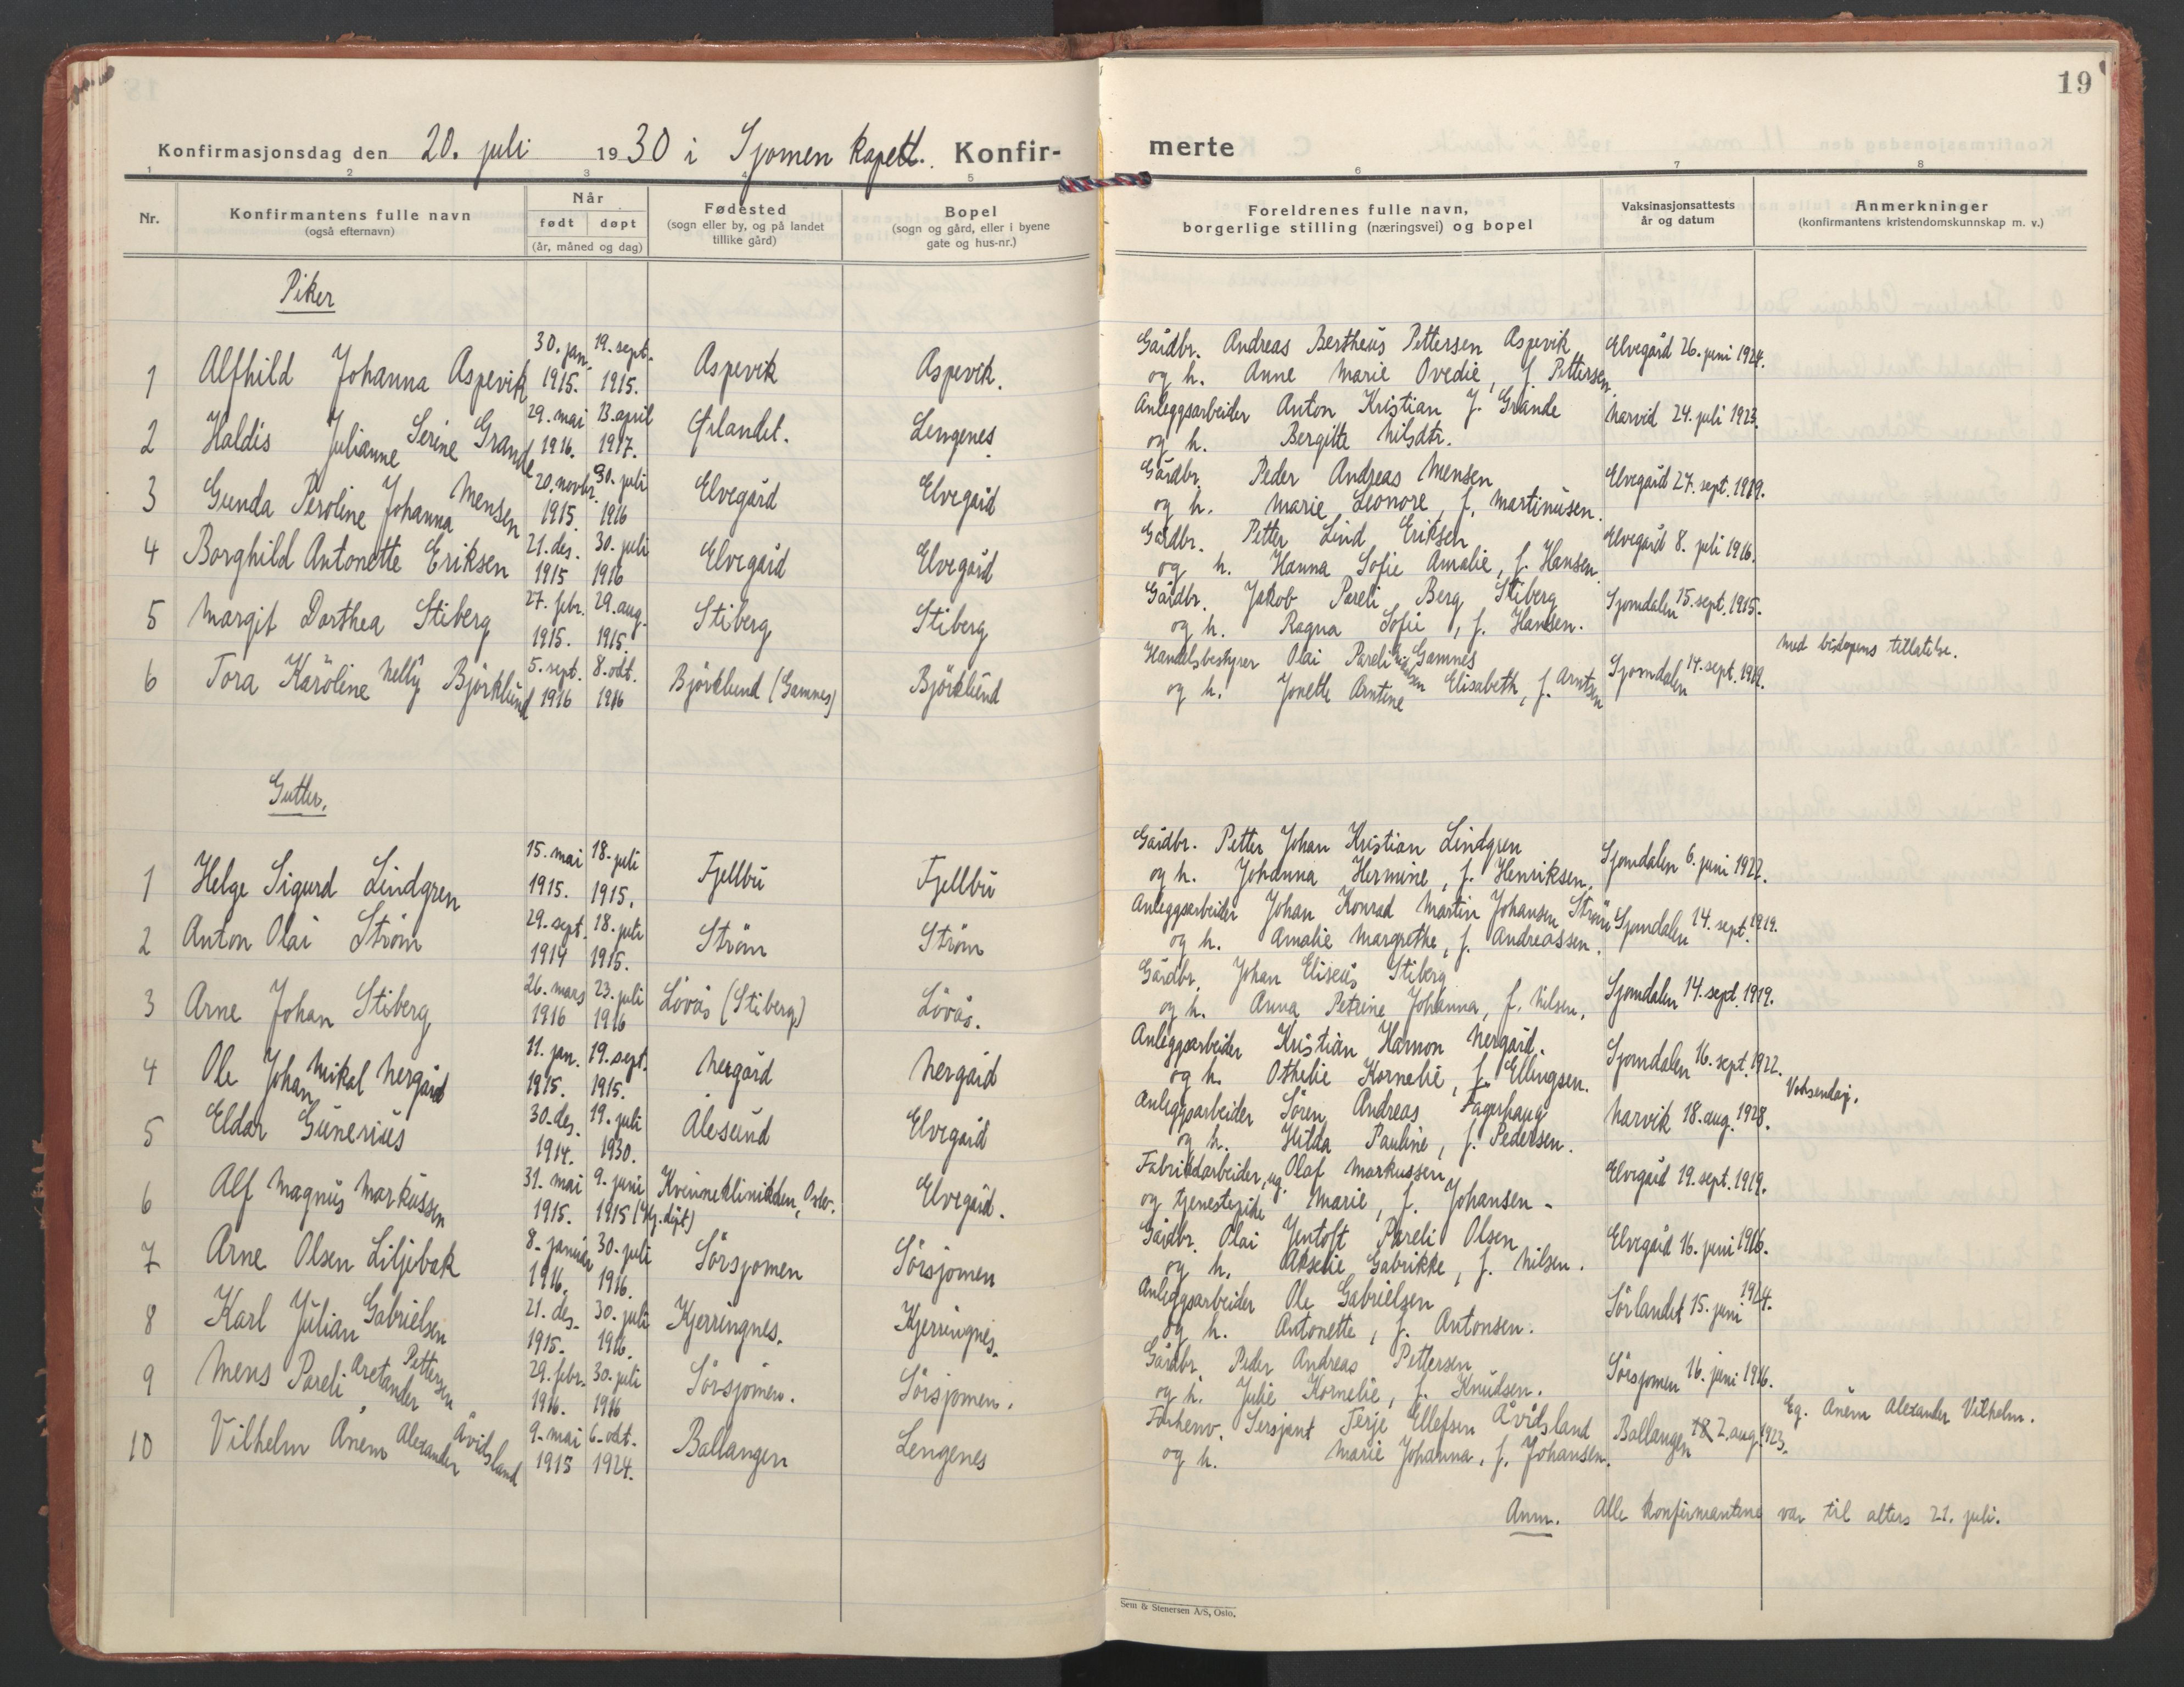 19
Konfirmasjonsdag den 20. juli 1930 i Sjomen kapell. Konfir-
merte
1 2 3 4 5 6 7 8
Nr.
Konfirmantens fulle navn
(også efternavn)
Når
født døpt
(år, måned og dag)
Fødested
(sogn eller by, og på landet
tillike gård)
Bopel
(sogn og gård, eller i byene
gate og hus-nr.)
Foreldrenes fulle navn,
borgerlige stilling (næringsvei) og bopel
Vaksinasjonsattests
år og datum
Anmerkninger
(konfirmantens kristendomskunnskap m. v.)
Piker
1 Alfhild Johanna Aspevik 30. jan. 1915. 19. sept. 1915. Aspevik Aspevik. Gårdbr. Andreas Bertheus Pettersen Aspevik Elvegård 26. juni 1924.
og h. Anne Marie Ovedie, f. Pettersen.
2 Haldis Julianne Serine Grande 29. mai 1916. 13. april 1917. Ørlandet. Lengenes. Anleggsarbeider Anton Kristian J. Grande Narvid 24. juli 1923.
og h. Bergitte Nilsdtr.
3 Gunda Peroline Johanna Mensen 20. novbr. 1915. 30. juli 1916 Elvegård Elvegård Gårdbr. Peder Andreas Mensen Elvegård 27. sept. 1919.
og h. Marie Leonore, f. Martinusen.
4 Borghild Antonette Eriksen 21. des. 1915 30. juli 1916 Elvegård Elvegård Gårdbr. Petter Lind Eriksen Elvegård 8. juli 1916.
og h. Hanna Sofie Amalie, f. Hansen.
5 Margit Dorthea Stiberg 27. febr. 1915. 29. aug. 1915. Stiberg Stiberg Gårdbr. Jakob Pareli Berg Stiberg Sjomdalen 15. sept. 1915.
og h. Ragna Sofie, f. Hansen.
6 Tora Karoline Nelly Björklund 5. sept. 1916 8. okt. 1916 Björklund (Gamnes) Björklund Handelsbestyrer Olai Pareli Nilsen Gamnes Sjomdalen 14. sept. 1919. Med biskopens tillatelse.
og h. Jonette Arntine Elisabeth, f. Arntsen
Gutter.
1 Helge Sigurd Lindgren 15. mai 1915. 18. juli 1915. Fjellbu Fjellbu Gårdbr. Petter Johan Kristian Lindgren Sjomdalen 6. juni 1922.
og h. Johanna Hermine, f. Henriksen.
2 Anton Olai Ström 29. sept. 1914 18. juli 1915. Ström Ström Anleggsarbeider Johan Konrad Martin Johansen Ström Sjomdalen 14. sept. 1919.
og h. Amalie Margrethe, f. Andreassen.
3 Arne Johan Stiberg 26. mars 1916 23. juli 1916 Lövås (Stiberg) Lövås. Gårdbr. Johan Eliseus Stiberg Sjomdalen 14. sept. 1919.
og h. Anna Petrine Johanna, f. Nilsen.
4 Ole Johan Mikal Nergård 11. jan. 1915. 19. sept. 1915. Nergård Nergård Anleggsarbeider Kristian Hamon Nergård. Sjomdalen 16. sept. 1922.
og h. Othelie Kornelie, f. Ellingsen.
5 Eldar Gunerius 30. des. 1914. 19. juli 1930. Ålesund Elvegård Anleggsarbeider Sören Andreas Fagerhaug Narvik 18. aug. 1928. Voksendøp.
og h. Hilda Pauline, f. Pedersen.
6 Alf Magnus Markussen 31. mai 1915. 9. juni 1915 (Hj. döpt) Kvinneklinikken, Oslo. Elvegård. Fabrikkarbeider, ug. Olaf Markussen Elvegård 19. sept. 1919.
og tjenestepike Marie, f. Johansen -
7 Arne Olsen Liljebak 8. januar 1916. 30. juli 1916. Sörsjomen Sörsjomen Gårdbr. Olai Jentoft Pareli Olsen Elvegård 16. juni 1916.
og h. Akselie Gabrikke, f. Nilsen.
8 Karl Julian Gabrielsen 21. des. 1915. 30. juli 1916. Kjerringnes. Kjerringnes. Anleggsarbeider Ole Gabrielsen Sörlandet 15. juni 1924.
og h. Antonette, f. Antonsen.
9 Mens Pareli Aretander Pettersen 29. febr. 1916. 30. juli 1916 Sörsjomen. Sörsjomen. Gårdbr. Peder Andreas Pettersen Sörsjomen 16. juni 1916.
og h. Julie Kornelie, f. Knudsen.
10 Vilhelm Anem Alexander Åvidsland 9. mai 1915 6. okt. 1924. Ballangen Lengenes Forhenv. Sersjant Terje Ellefsen Åvidsland Ballangen 2. aug. 1923. Eg. Anem Alexander Vilhelm.
og h. Marie Johanna, f. Johansen.
Anm. Alle konfirmantene var til alters 21. juli.
Sem & Stenersen A/S, Oslo.